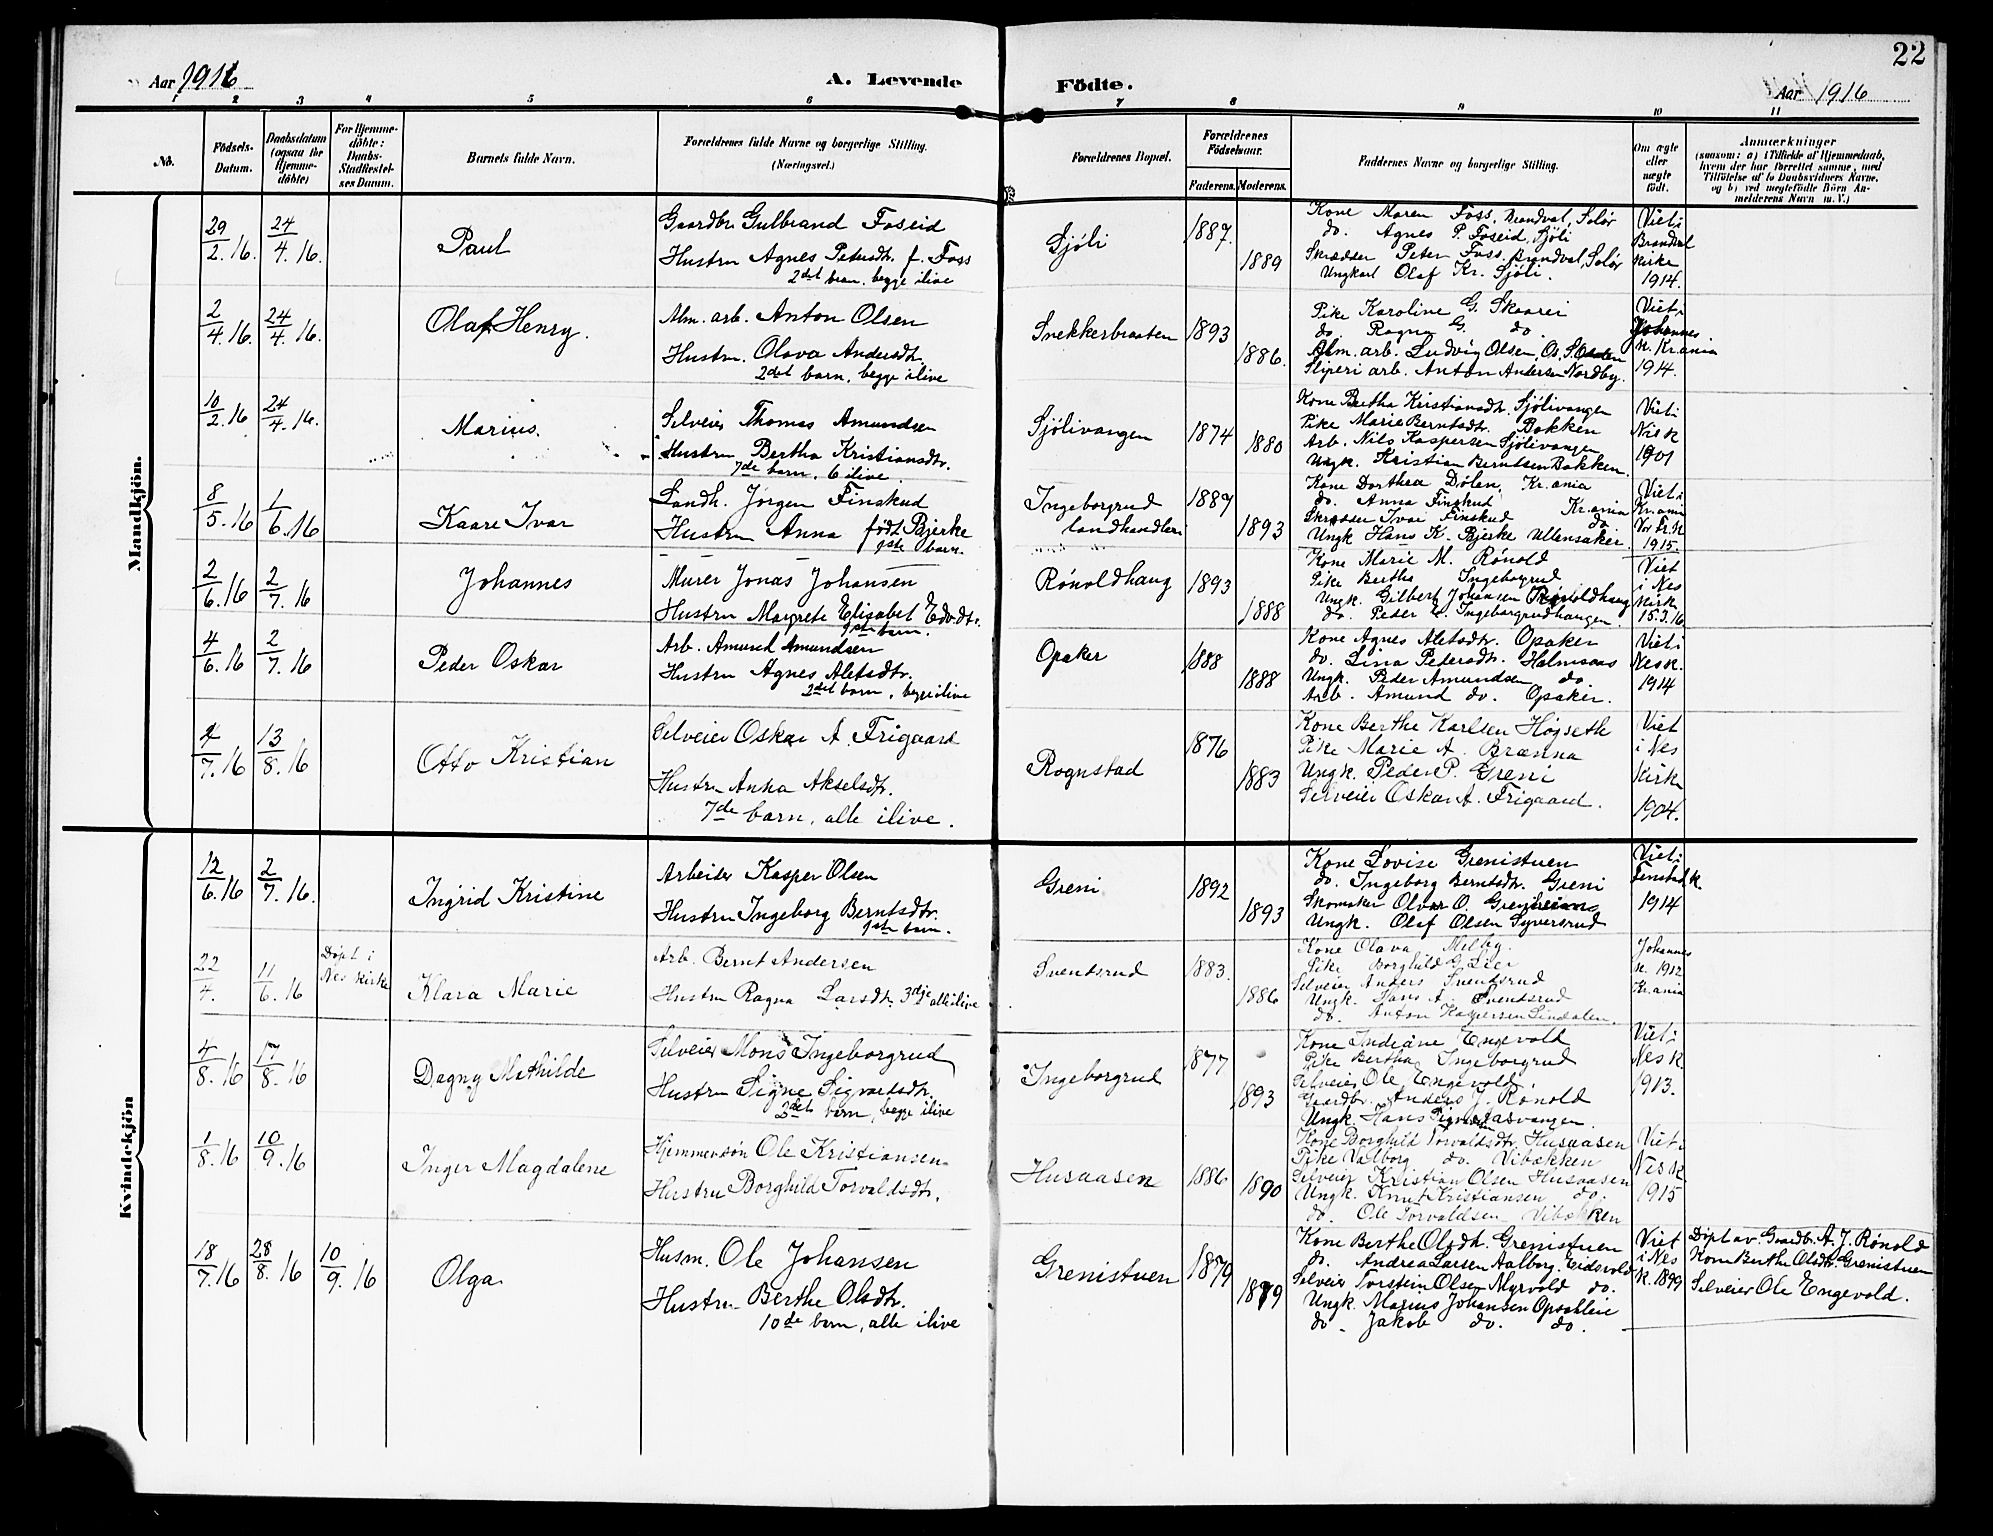 22
Aar 1916
A. Levende Födte.
Aar 1916
1 2 3 4 5 6 7 8 9 10 11
No.
Födsels-Datum.
Daabsdatum (ogsaa for Hjemme-döbte)
For Hjemme-döbte: Daabs-Stadfæstel-ses Datum.
Barnets fulde Navn.
Forældrenes fulde Navne og borgerlige Stilling.
(Næringsvei.)
Forældrenes Bopæl.
Forældrenes Födselsaar.
Faderens. Moderens.
Faddernes Navne og borgerlige Stilling.
Om ægte eller uægte födt.
Anmærkninger
(saasom: a) i Tilfælde af Hjemmedaab,
hvem der har forrettet samme, med
Tilföielse af to Daabsvidners Navne,
og b) ved uægtefödte Börn An-
melderens Navn m. V.)
Mandkjön.
29/2.16. 24/4.16. Paul
Gaardbr. Gulbrand Foseid
Hustru Agnes Petersdtr. f. Foss
2det barn, begge ilive
Sjöli 1887. 1889
Kone Maren Foss, Brandval, Solör
do. Agnes P. Foseid, Sjöli
Skrædder Peter Foss. Brandval, Solör
Ungkarl Olaf Kr. Sjöli.
Viet i
Brandval
Kirke
1914.
2/4.16. 24/4.16. Olaf Henry.
Alm. arb. Anton Olsen
Hustru. Olava Andersdtr.
2det barn, begge ilive
Snekkerbraaten 1893 1886.
Pike Karoline G. Skaarer
do. Ragna G. do.
Alm. arb. Ludvig Olsen, Os,
Sliperi arb. Anton Andersen Nordby.
Viet i
Johannes
k. Kr.ania
1914.
10/2.16 24/4.16. Marius.
Selveier Thomas Amundsen
Hustru Bertha Kristiansdtr.
7de barn, 6 ilive
Sjölivangen 1874 1880
Kone Bertha Kristiansdtr. Sjölivangen
Pike Marie Berntsdtr. Bakken
Arb. Nils Kaspersen Sjölivangen
Ungk. Kristian Berntsen Bakken.
Viet i
Nes k
1901
8/5.16 1/6.16 Kaare Ivar
Landh. Jørgen Finskud
Hustru Anna født Bjerke
1ste barn.
Ingeborgrud
landhandleri 1889 1893
Kone Dorthea Dølen, Kr.ania
do. Anna Finskud Kr.ania
Skrædder Ivar Finskud do
Ungk Hans K. Bjerke Ullensaker.
Viet i
Kr.ania
Vor Fr. K
1915.
2/6.16 2/7.16 Johannes
Murer Jonas Johansen
Hustru Margrete Elisabet Edv.dtr.
1ste barn.
Rönoldhaug 1893 1888
Kone Marie M. Rönold
Pike Bertha Ingeborgrud
Ungk. Gilbert Johansen Rönoldhaug
do. Peder E. Ingeborgrudhaugen.
Viet
i Nes
Kirk
15.3.16
4/6.16 2/7.16 Peder Oskar
Arb. Amund Amundsen
Hustru Agnes Aletsdtr.
2det barn, begge ilive
Opaker 1888 1888
Kone Agnes Aletsdtr. Opaker
do. Lina Petersdtr. Holmsaas
Ungk. Peder Amundsen do.
Arb. Amund do. Opaker.
Viet i
Nes k.
1914
4/7.16 13/8.16 Otto Kristian
Selveier Oskar A. Frigaard
Hustru Anna Akselsdtr.
7de barn, alle ilive.
Rognstad 1876 1883
Kone Berthe Karlsen Högseth
Pike Marie A. Brænna
Ungk. Peder P. Greni
Selveier Oskar A. Frigaard.
Viet
i Nes
Kirk
1904.
Kvindekjön
12/6.16 2/7.16. Ingrid Kristine
Arbeider Kasper Olsen
Hustru Ingeborg Berntsdtr.
1ste barn.
Greni 1892 1893
Kone Lovise Grenistuen
do. Ingeborg Berntsdtr. Greni
Skomaker Olvar O.
Ungk. Olaf Olsen Syversrud
Viet i
Fenstad k.
1914
22/4. 11/6.16 Döpt i
Nes Kirke
Klara Marie
Arb. Bernt Andersen
Hustru Ragna Larsdtr. 3dje alle ilive
Svendsrud 1883. 1886
Kone Olava Melby.
Pike Borghild G. Lier
Selveier Anders Svendsrud
Ungk. Hans A. Svendsrud
do. Anton Kaspersen Lindalen.
Johannes
k. 1912
Kr.ania
4/8.16 17/8.16 Dagny Mathilde
Selveier Mons Ingeborgrud
Hustru Signe Sigvartsdtr.
2det barn, begge ilive
Ingeborgrud 1877 1893
Kone Indiane Engevold
Pike Bertha Ingeborgrud
Selveier Ole Engevold.
Gaardbr. Anders J. Rönold
Ungk. Hans
Viet i
Nes k
1913.
1/8.16 10/9.16 Inger Magdalene
Hjemmesön Ole Kristiansen
Hustru Borghild Torvaldsdtr.
Husaasen 1886 1890
Kone Borghild Torvaldsdtr. Husaasen
Pike Valborg do. Vibækken
Selveier Kristian Olsen Husaasen
Ungk. Knut Kristiansen do.
do. Ole Torvaldsen Vibækken
Viet i
Nes k
1915
18/7.16 28/8.16 10/9.16 Olga
Husm. Ole Johansen
Hustru Berthe Olsdtr.
10de barn, alle ilive
Grenistuen 1879 1879
Kone Berthe Olsdtr. Grenistuen
do. Andrea Larsen Aalborg. Eidsvold
Selveier Torstein Olsen Myrvold do.
Ungk. Marius Johansen Opsahleie
do. Jakob do. do.
Viet
i Nes
k. 1899
Döpt av. Gaardbr. A. J. Rönold
Kone Berthe Olsdtr. Grenistuen
Selveier Ole Engevold.